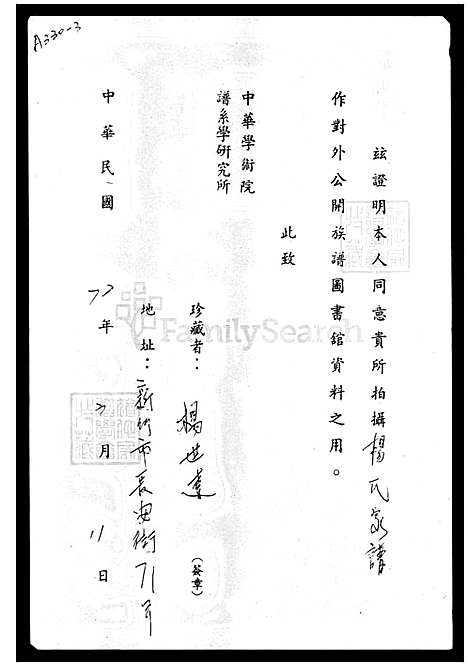 A330-3
茲證明本人同意貴所拍攝楊氏家譜
作對外公開族譜圖書館資料之用。
此致
中華學術院
譜系學研究所
珍藏者：楊世 (簽章)
地址：新竹市長安街71号
中華民國 73年 7月 11日
FamilySearch